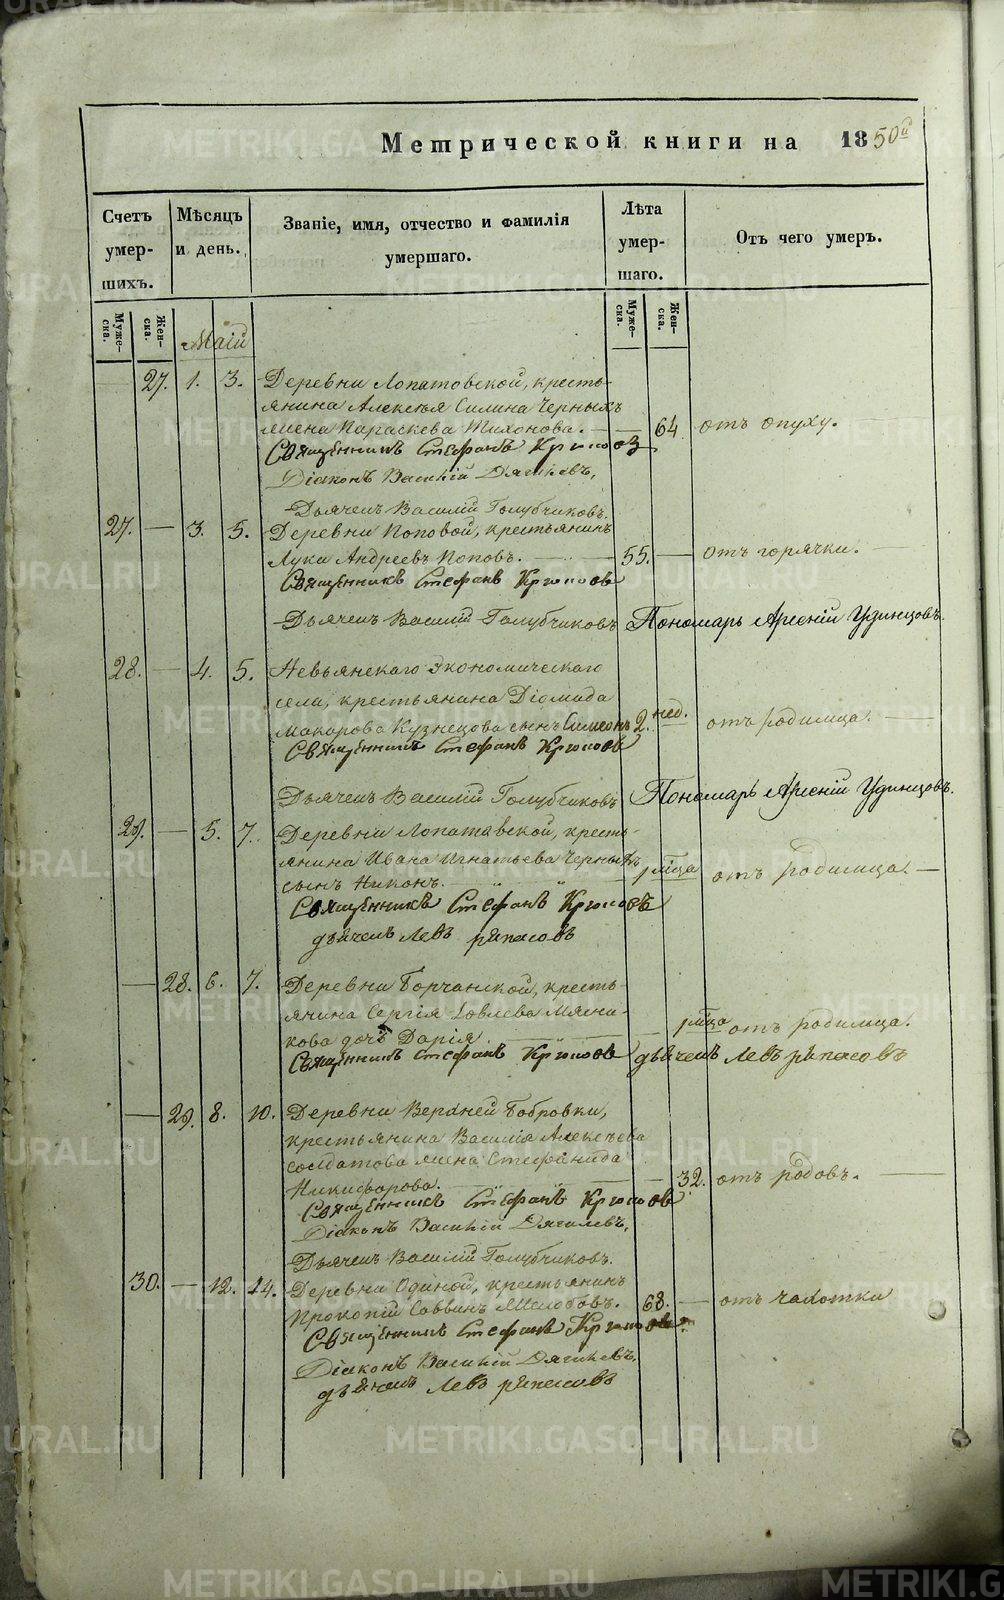 Метрической книги на 1850й
Счетъ умер- шихъ.
Мѣсяцъ и день.
Званіе, имя, отчество и фамилія умершаго.
Лѣта умер- шаго.
Отъ чего умеръ.
Муже- ска.
Жен- ска.
Муже- ска.
Жен- ска.
Маій
27. 1. 3. Деревни Лопатовской, кресть-
янина Алексѣя Силина Черныхъ
жена Параскева Тихонова. 64. отъ опуху.
Священникъ Стефанъ
Діаконъ Василій Дягилевъ,
Дьячекъ Василій Голубчиковъ.
27. 3. 5. Деревни Поповой, крестьянинъ
Лука Андреевъ Поповъ. 55. отъ горячки.
Священникъ Стефанъ
Дьячекъ Василій Голубчиковъ Пономарь Арсеній Удинцовъ.
28. 4. 5. Невьянскаго Экономическаго
села, крестьянина Діомида
Макарова Кузнецова сынъ Симеонъ 2. нед. отъ родимца.
Священникъ Стефанъ
Дьячекъ Василій Голубчиковъ Пономарь Арсеній Удинцовъ.
29. 5. 7. Деревни Лопатавской, кресть-
янина Ивана Игнатьева Черныхъ
сынъ Никонъ. 1 мѣца отъ родимца.
Священникъ Стефанъ
дьячекъ Левъ
28. 6. 7. Деревни Борчанской, кресть-
янина Сергія Іовлева Мясни-
кова дочь Дарія. 1 мѣца отъ родимца.
Священникъ Стефанъ дьячекъ Левъ
29. 8. 10. Деревни Верхней Бобровки,
крестьянина Василія Алексѣева
Солдатова жена Стефанида
Никифорова. 32. отъ родовъ.
Священникъ Стефанъ
Діаконъ Василій Дягилевъ,
Дьячекъ Василій Голубчиковъ.
30. 12. 14. Деревни Одиной, крестьянинъ
Прокопій Саввинъ 68. отъ чахотки
Священникъ Стефанъ
Діаконъ Василій Дягилевъ,
дьячекъ Левъ
METRIKI.GASO-URAL.RU